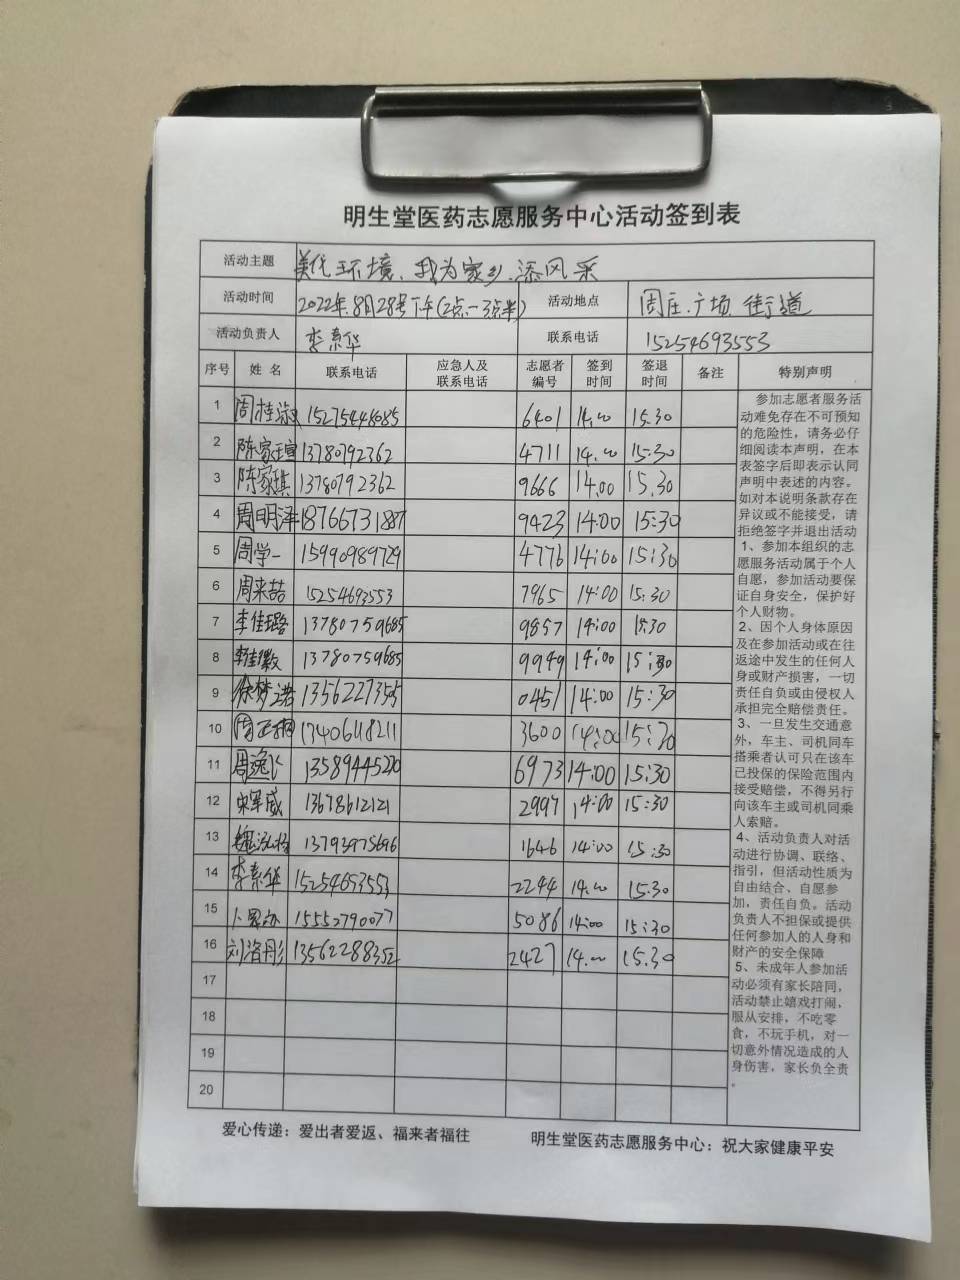 明生堂医药志愿服务中心活动签到表
活动主题 美化环境、我为家乡添风采
活动时间 2022年8月28号下午(2点—3点半) 活动地点 周庄广场 街道
活动负责人 李素华 联系电话 15254693553
序号 姓名 联系电话 应急人及联系电话 志愿者编号 签到时间 签退时间 备注 特别声明
1 周桂淑 15275448085 6401 14.00 15.30
2 陈家瑄 13780792362 4711 14.00 15:30
3 陈家琪 13780792362 9666 14.00 15.30
4 周明泽 18766731887 9423 14:00 15:30
5 周学一 15990989729 4776 14:00 15:30
6 周来喆 15254693553 7965 14:00 15:30
7 李佳璐 13780759685 9857 14:00 15:30
8 李佳徽 13780759685 9949 14:00 15:30
9 徐梦诺 13562273535 0451 14:00 15:30
10 周 13406118211 3600 14:00 15:30
11 周逸飞 13589445220 6973 14:00 15:30
12 宋军威 13678612121 2997 14:00 15:30
13 魏泓杨 13793975696 1646 14:00 15:30
14 李素华 15254653553 2244 14.00 15.30
15 卜 15552790077 5086 14:00 15:30
16 刘洛彤 13562288352 2427 14.00 15.30
17
18
19
20
参加志愿者服务活
动难免存在不可预知
的危险性，请务必仔
细阅读本声明，在本
表签字后即表示认同
声明中表述的内容。
如对本说明条款存在
异议或不能接受，请
拒绝签字并退出活动
1、参加本组织的志
愿服务活动属于个人
自愿，参加活动要保
证自身安全，保护好
个人财物。
2、因个人身体原因
及在参加活动或在往
返途中发生的任何人
身或财产损害，一切
责任自负或由侵权人
承担完全赔偿责任。
3、一旦发生交通意
外，车主、司机同车
搭乘者认可只在该车
已投保的保险范围内
接受赔偿，不得另行
向该车主或司机同乘
人索赔。
4、活动负责人对活
动进行协调、联络、
指引，但活动性质为
自由结合、自愿参
加，责任自负。活动
负责人不担保或提供
任何参加人的人身和
财产的安全保障
5、未成年人参加活
动必须有家长陪同，
活动禁止嬉戏打闹，
服从安排，不吃零
食，不玩手机，对一
切意外情况造成的人
身伤害，家长负全责
。
爱心传递：爱出者爱返、福来者福往 明生堂医药志愿服务中心：祝大家健康平安